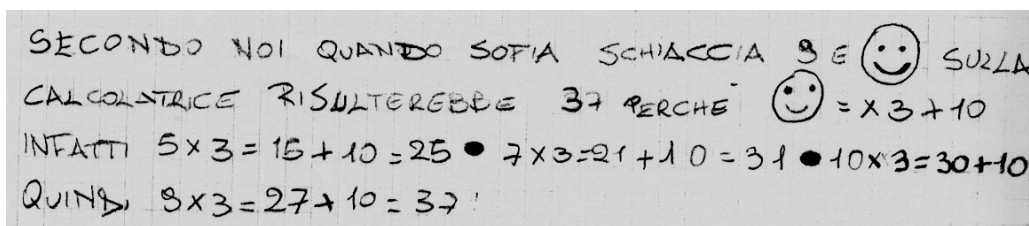 SECONDO NOI QUANDO SOFIA SCHIACCIA 9 E 🙂 SULLA
CALCOLATRICE RISULTEREBBE 37 PERCHE' 🙂 = x 3 + 10
INFATTI 5 x 3 = 15 + 10 = 25 • 7 x 3 = 21 + 10 = 31 • 10 x 3 = 30 + 10
QUINDI 9 x 3 = 27 + 10 = 37